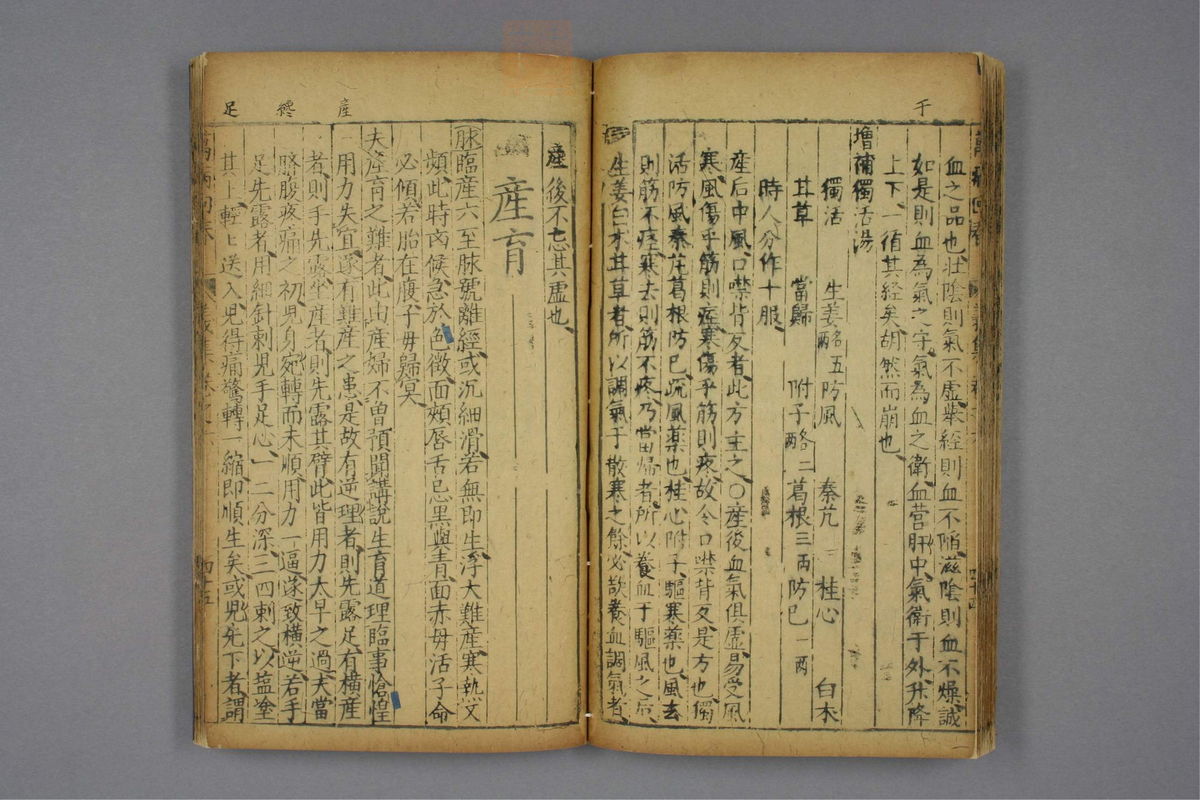 千
血之品也壯陰則氣不虛舉經則血不陷滋陰則血不燥誠
如是則血為氣之守氣為血之衛血营肝中氣衛于外升降
上下一循其経矣胡然而崩也
增補獨活湯
獨活 生姜各五兩 防風 秦艽 桂心 白术
甘草 當歸 附子各二兩 葛根三兩 防巳一兩
時人分作十服
産后中風口噤背反者此方主之○産後血氣俱虛易受風
寒風傷乎筋則痙寒傷乎筋則疼故令口噤背反是方也獨
活防風秦艽葛根防巳疏風薬也桂心附子驅寒薬也風去
則筋不痙寒去則筋不疼乃當歸者所以養血于驅風之后
生姜白术甘草者所以調氣于散寒之餘必欲養血調氣者
産 終 足
産後不忘其虛也
産育
脉臨産六至脉號離經或沉細滑若無即生浮大難産寒熱又
頻此時䒭候急於色徵面頰唇舌忌黒與青面赤母活子命
必傾若胎在腹子母歸冥
夫産育之難者此由産婦不曽預聞講說生育道理臨事愴惶
用力失宜遂有難産之患是故有逆理者則先露足有横産
者則手先露坐産者則先露其臂此皆用力太早之過夫當
臍腹疼痛之初児身宛轉而未順用力一逼遂致横逆若手
足先露者用細針刺児手足心一二分深三四刺之以盐塗
其上輕ヒ送入児得痛驚轉一縮即順生矣或児先下者謂